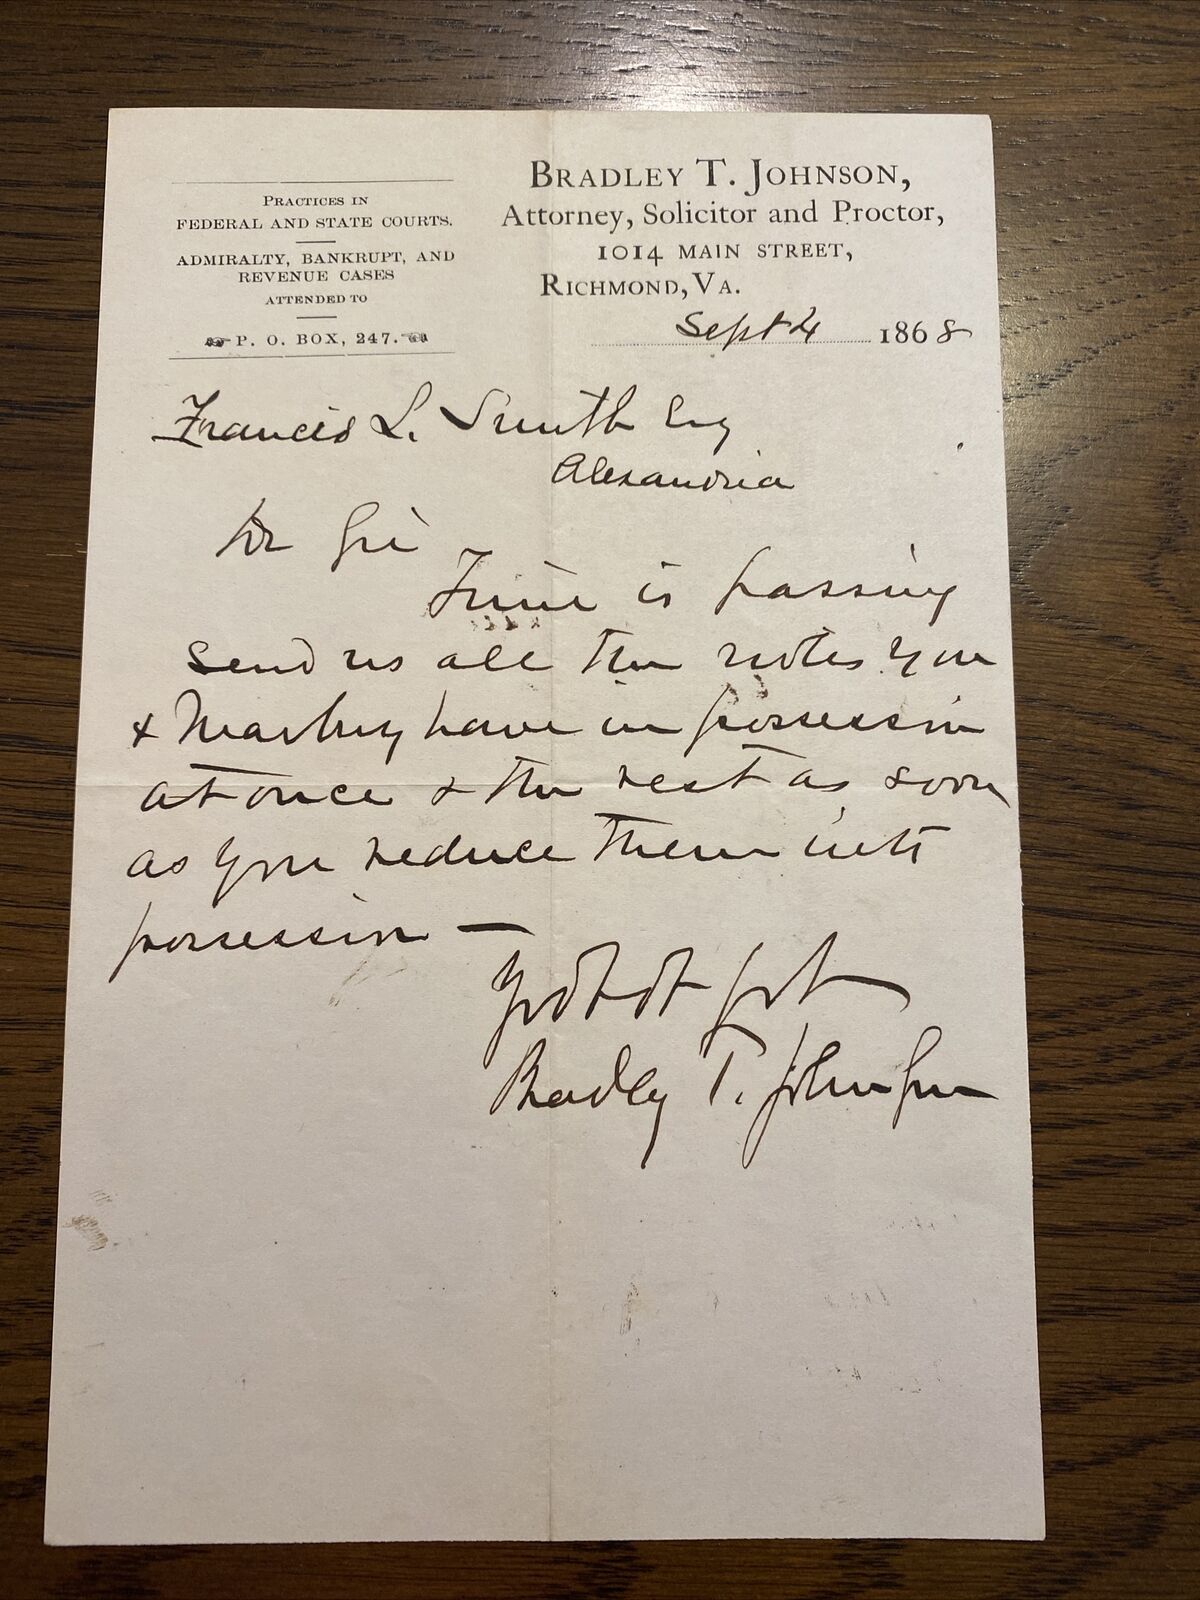 PRACTICES IN
FEDERAL AND STATE COURTS.
ADMIRALTY, BANKRUPT, AND
REVENUE CASES
ATTENDED TO
P. O. BOX, 247.
BRADLEY T. JOHNSON,
Attorney, Solicitor and Proctor,
1014 MAIN STREET,
RICHMOND, VA.
Sept 4 1868
Francis L. Smith Esq
Alexandria
Dr Sir
Time is passing
send us all the notes you
& Marbury have in possession
at once & the rest as soon
as you reduce them into
possession —
Bradley T. Johnson